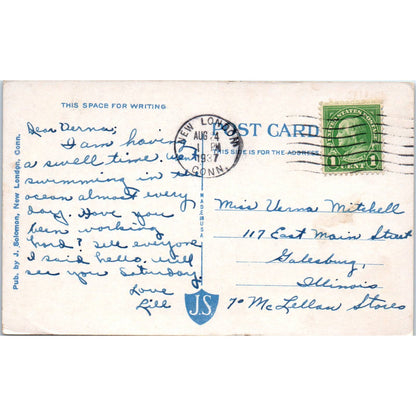 THIS SPACE FOR WRITING
Dear Verna;
I am having
a swell time. Went
swimming in the
ocean almost every
day. Have you
been working
hard? Tell everyone
I said hello. Will
see you Saturday.
Love
Lill
Pub. by J. Solomon, New London, Conn.
MADE IN USA
J.S.
NEW LONDON
AUG 24
PM
1937
CONN.
POST CARD
THIS SIDE IS FOR THE ADDRESS
UNITED STATES POSTAGE
1 CENT 1
Miss Verna Mitchell
117 East Main Street
Galesburg,
Illinois
% McLellan Stores